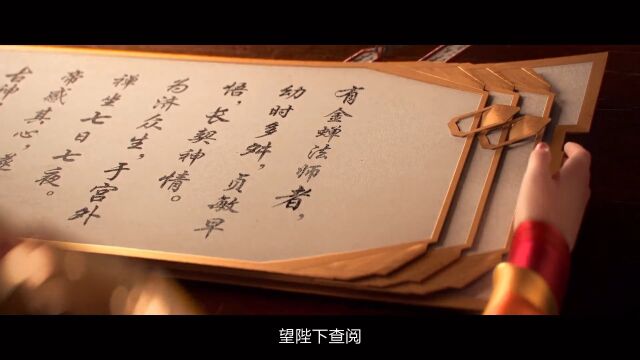 有金蝉法师者，
幼时多舛，贞敏早
悟，长契神情。
为济众生，于宫外
禅坐七日七夜。
帝感其心，遂
古神
望陛下查阅